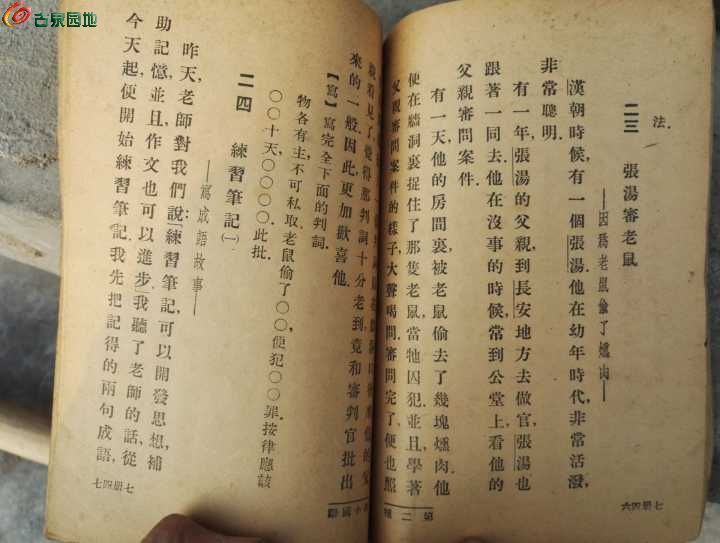 古泉园地
法.
二三 張湯審老鼠
——因爲老鼠偷了燻肉——
漢朝時候,有一個張湯.他在幼年時代,非常活潑,
非常聰明.
有一年,張湯的父親到長安地方去做官,張湯也
跟著一同去.他在沒事的時候,常到公堂上看他的
父親審問案件.
有一天,他的房間裏,被老鼠偷去了幾塊燻肉.他
便在牆洞裏捉住了那隻老鼠,當牠囚犯,並且,學著
父親審問案件的樣子,大聲喝問.審問完了,便也照
七册四六
第二種
親看見了,覺得那判詞十分老到,竟和審判官批出
來的一般.因此,更加歡喜他.
【寫】寫完全下面的判詞.
物各有主,不可私取.老鼠偷了〇〇,便犯〇〇罪.按律應該
〇〇十天,〇〇〇〇.此批.
二四 練習筆記(一)
——寫成語故事——
昨天,老師對我們說:「練習筆記,可以開發思想,補
助記憶,並且,作文也可以進步.」我聽了老師的話,從
今天起,便開始練習筆記.我先把記得的兩句成語,
七册四七